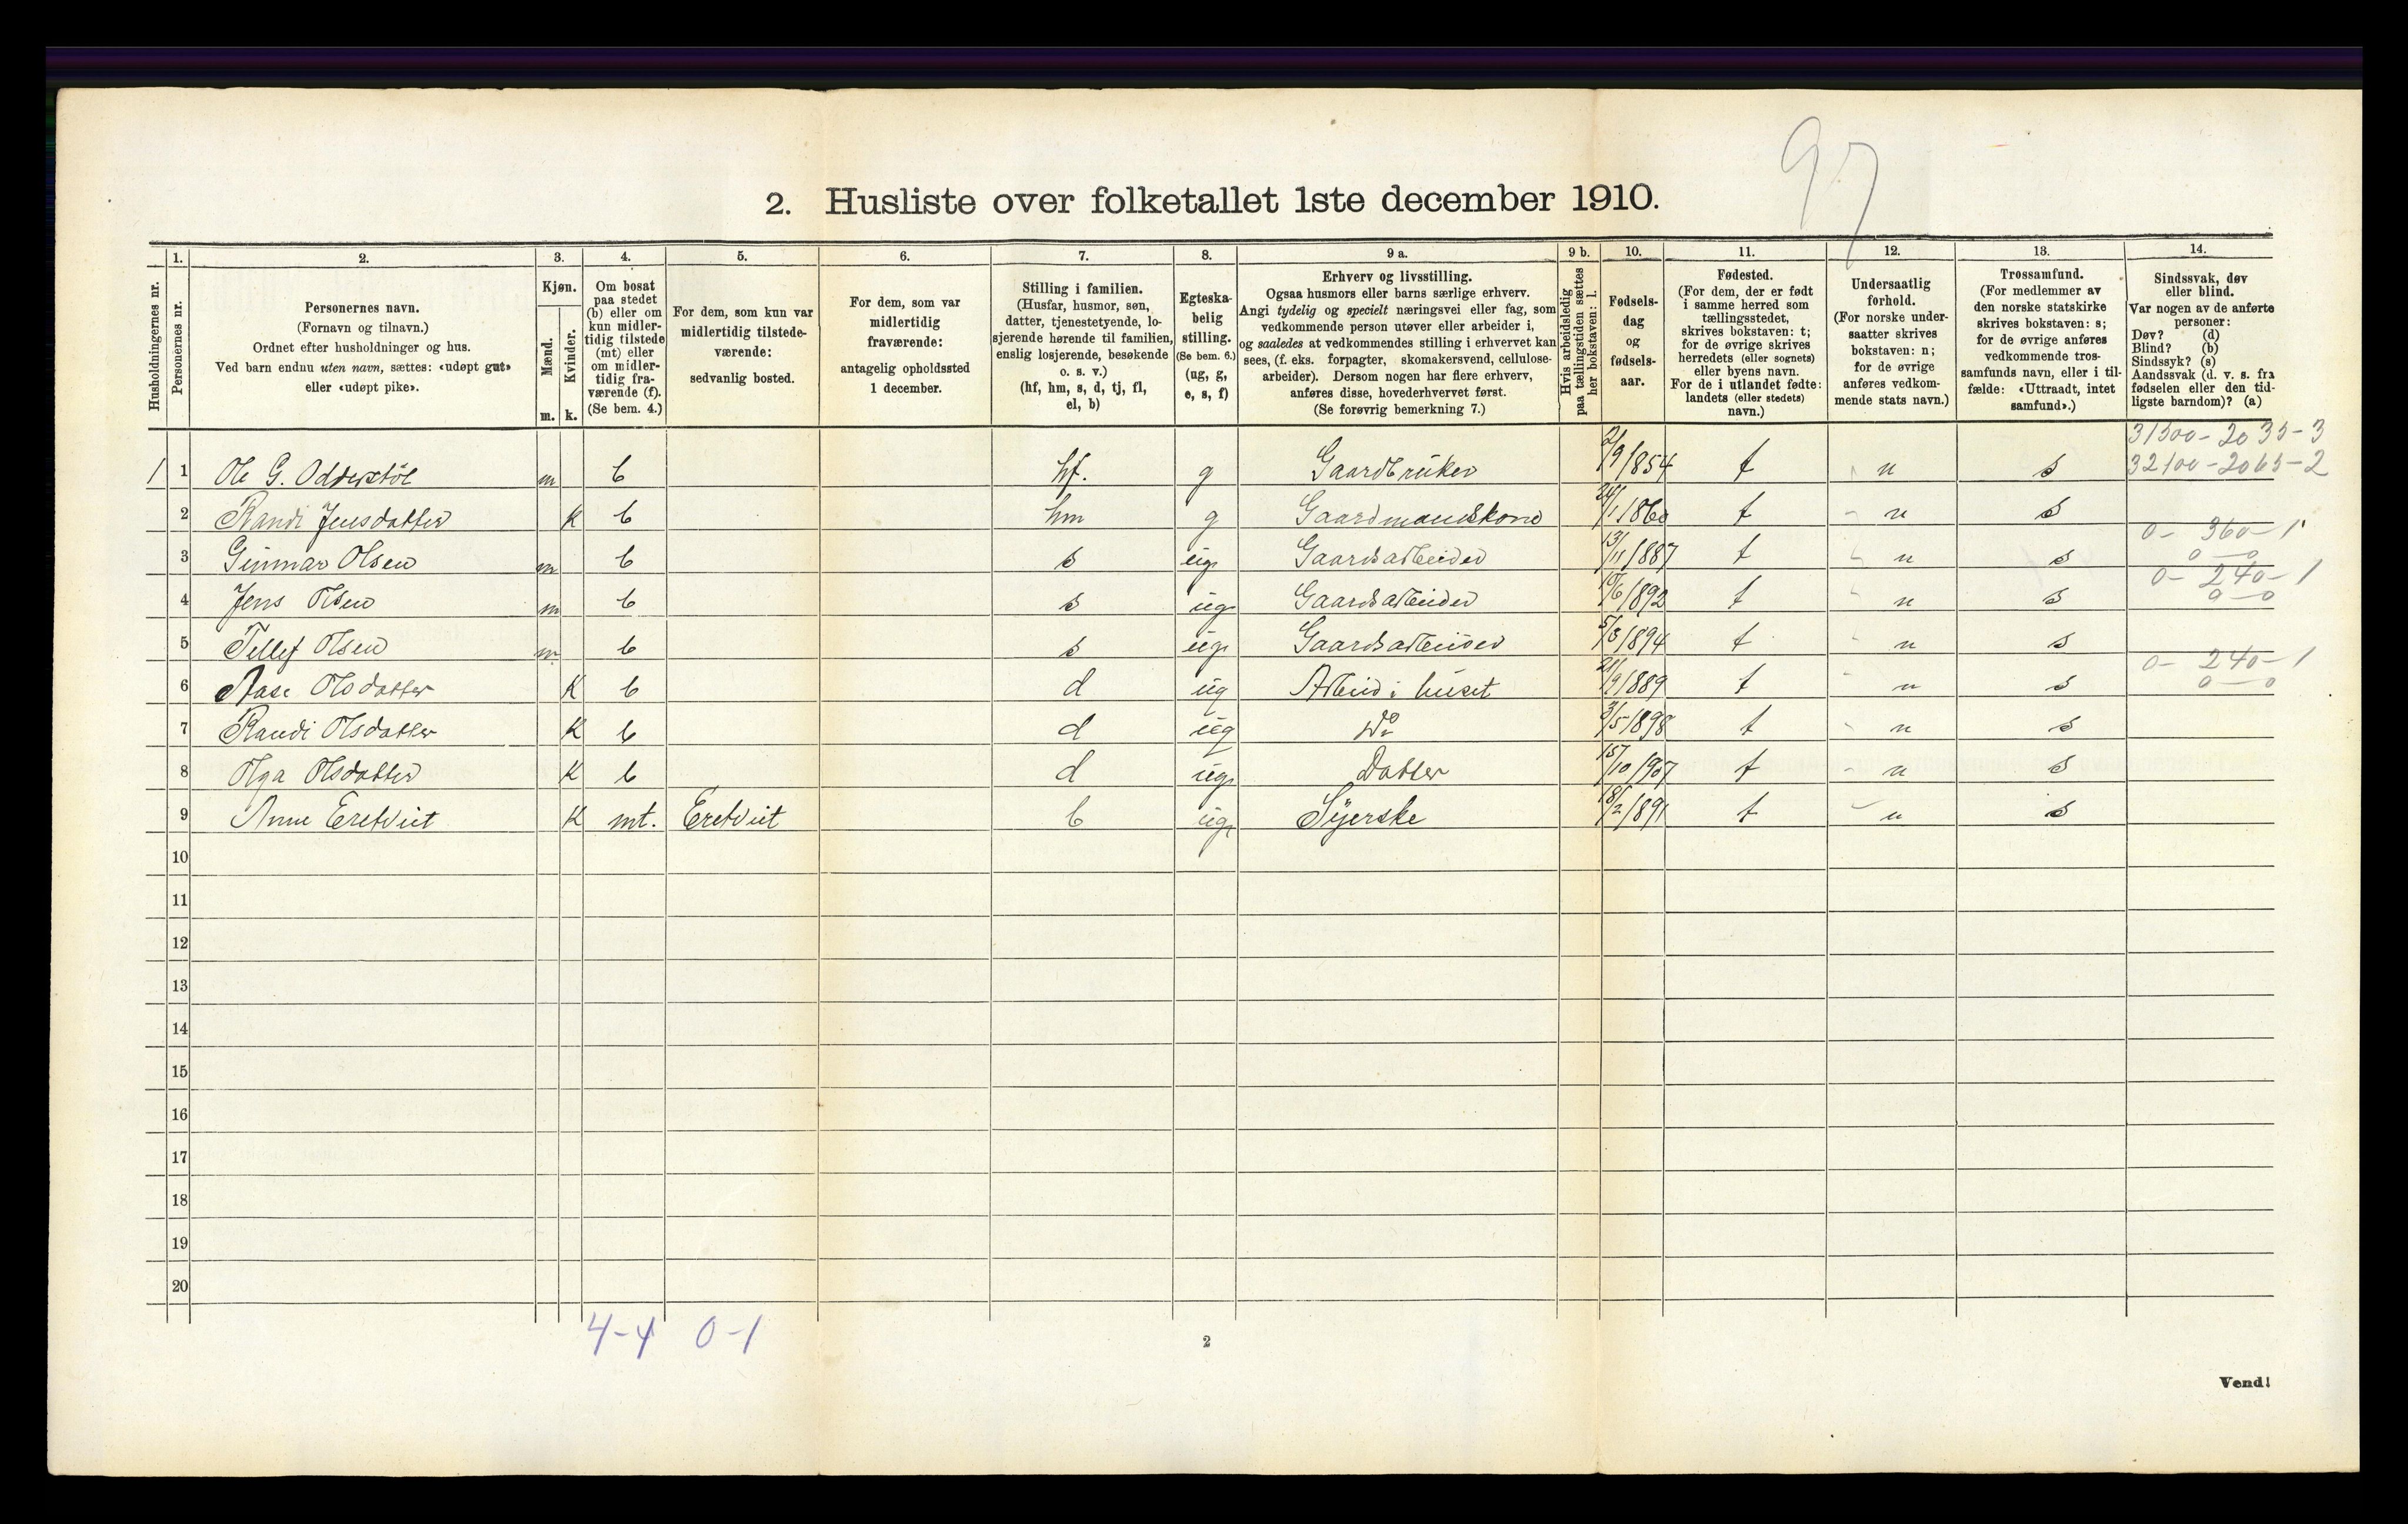 97
2. Husliste over folketallet 1ste december 1910.
Husholdningernes nr.
1.
Personernes nr.
2.
Personernes navn.
(Fornavn og tilnavn.)
Ordnet efter husholdninger og hus.
Ved barn endnu uten navn, sættes: «udøpt gut»
eller «udøpt pike».
3.
Kjøn.
Mænd.
m.
Kvinder.
k.
4.
Om bosat
paa stedet
(b) eller om
kun midler-
tidig tilstede
(mt) eller
om midler-
tidig fra-
værende (f).
(Se bem. 4.)
5.
For dem, som kun var
midlertidig tilstede-
værende:
sedvanlig bosted.
6.
For dem, som var
midlertidig
fraværende:
antagelig opholdssted
1 december.
7.
Stilling i familien.
(Husfar, husmor, søn,
datter, tjenestetyende, lo-
sjerende hørende til familien,
enslig losjerende, besøkende
o. s. v.)
(hf, hm, s, d, tj, fl,
el, b)
8.
Egteska-
belig
stilling.
(Se bem. 6.)
(ug, g,
e, s, f)
9 a.
Erhverv og livsstilling.
Ogsaa husmors eller barns særlige erhverv.
Angi tydelig og specielt næringsvei eller fag, som
vedkommende person utøver eller arbeider i,
og saaledes at vedkommendes stilling i erhvervet kan
sees, (f. eks. forpagter, skomakersvend, cellulose-
arbeider). Dersom nogen har flere erhverv,
anføres disse, hovederhvervet først.
(Se forøvrig bemerkning 7.)
9 b.
Hvis arbeidsledig
paa tællingstiden sættes
her bokstaven: l.
10.
Fødsels-
dag
og
fødsels-
aar.
11.
Fødested.
(For dem, der er født
i samme herred som
tællingsstedet,
skrives bokstaven: t;
for de øvrige skrives
herredets (eller sognets)
eller byens navn.
For de i utlandet fødte:
landets (eller stedets)
navn.)
12.
Undersaatlig
forhold.
(For norske under-
saatter skrives
bokstaven: n;
for de øvrige
anføres vedkom-
mende stats navn.)
13.
Trossamfund.
(For medlemmer av
den norske statskirke
skrives bokstaven: s;
for de øvrige anføres
vedkommende tros-
samfunds navn, eller i til-
fælde: «Uttraadt, intet
samfund».)
14.
Sindssvak, døv
eller blind.
Var nogen av de anførte
personer:
Døv? (d)
Blind? (b)
Sindssyk? (s)
Aandssvak (d. v. s. fra
fødselen eller den tid-
ligste barndom)? (a)
31500-2035-3
1 1 Ole G. Odderstøl m b hf. g Gaardbruker 2/9 1854 t n s 32100-2065-2
2 Randi Jensdatter K b hm g Gaardmandskone 24/1 1860 t n s
0- 360-1
3 Gunnar Olsen m b s ug Gaardsarbeider 13/11 1887 t n s 0-0
0- 240-1
4 Jens Olsen m b s ug Gaardsarbeider 10/6 1892 t n s 0-0
5 Tellef Olsen m b s ug Gaardsarbeider 5/3 1894 t n s
0- 240-1
6 Aase Olsdatter K b d ug Arbeid i huset 21/9 1889 t n s 0-0
7 Randi Olsdatter K b d ug Do 3/5 1898 t n s
8 Olga Olsdatter K b d ug Datter 15/10 1907 t n s
9 Anne Eretveit K mt. Eretveit b ug Syerske 18/2 1891 t n s
10
11
12
13
14
15
16
17
18
19
20
4-4 0-1
2
Vend!